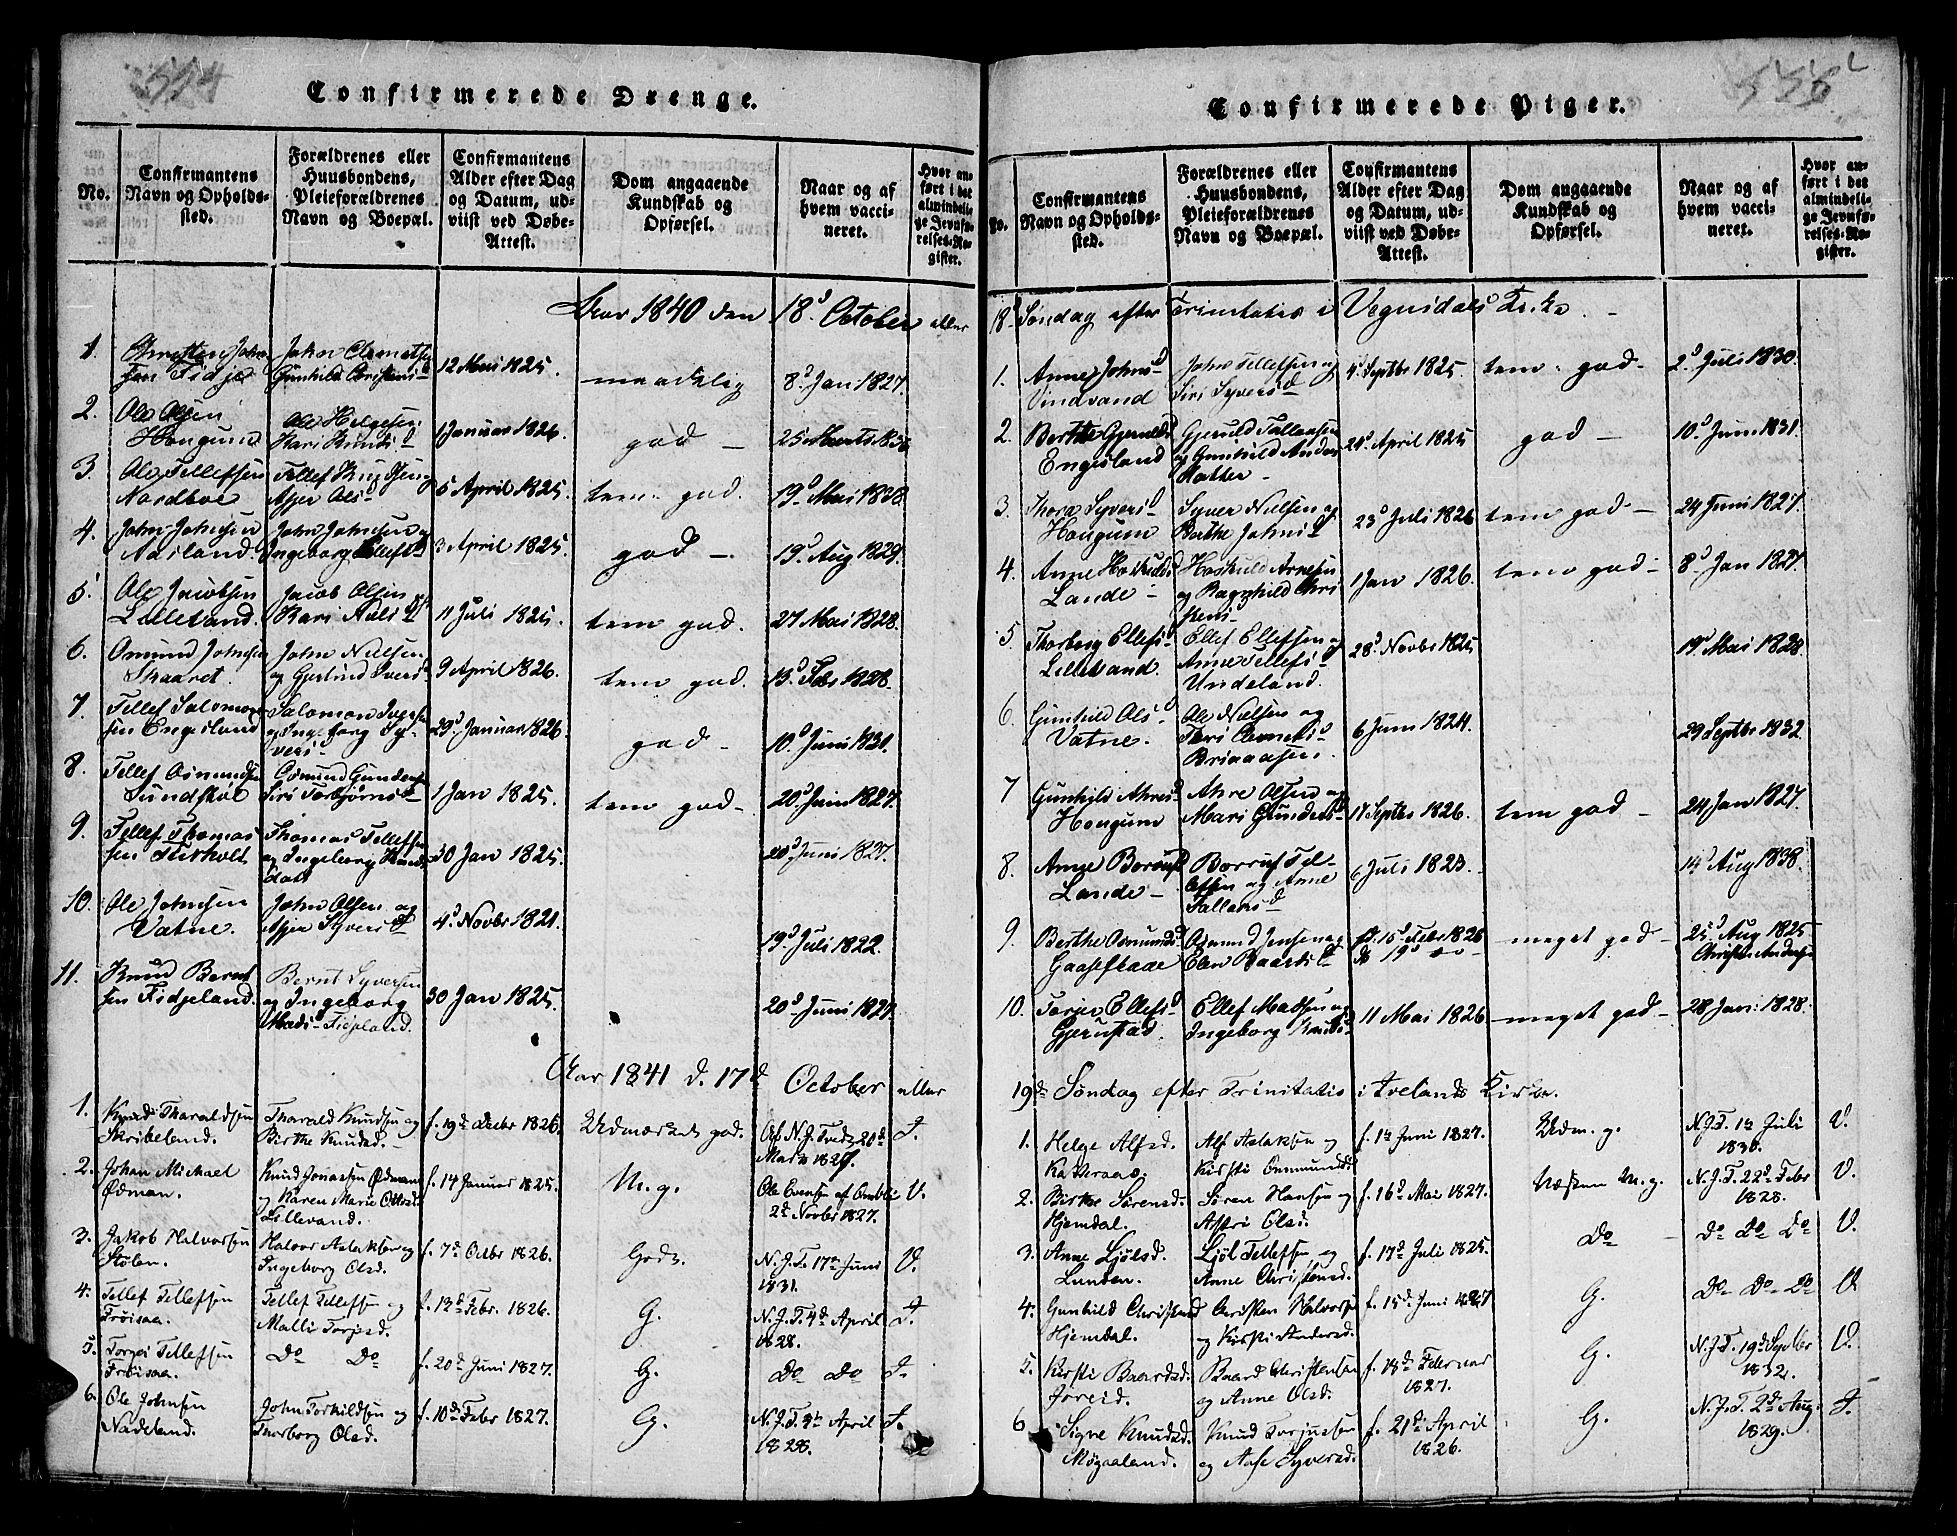 554
Confirmerede Drenge.
No.
Confirmantens
Navn og Opholds-
sted.
Forældrenes eller
Huusbondens,
Pleieforældrenes
Navn og Boepæl.
Confirmantens
Alder efter Dag
og Datum, ud-
viist ved Døbe-
Attest.
Dom angaaende
Kundskab og
Opførsel.
Naar og af
hvem vacci-
neret.
Hvor an-
ført i det
almindeli-
ge Jevnfø-
relses-Re-
gister.
Aar 1840 den 18d October eller
1. Christen John
sen Fidje
John Clemetsen
Gunhild Christens
12 Mai 1825.
maadelig
8d Jan 1827.
2. Ole Olsen
Hougum
Ole Helgesen
Kari Knuds
1 Januar 1826.
god —
25 Marts
3. Ole Tellefsen
Nordboe
Tellef
Asjer Ols
5 April 1825.
tem. god.
19d Mai 1828
4. John Johnsen
Aasland.
John Johnsen og
Ingeborg Ellefsd
3 April 1825.
god —
19d Aug 1829.
5. Ole Jacobsen
Lillevand.
Jacob Olsen
Kari
11 Juli 1825.
tem god.
27 Mai 1828.
6. Osmund Johnsen
Skaaret.
John Nielsen
og Gjerlind Ivers
9 April 1826.
tem god.
13d Febr 1828.
7. Tellef Salomon
sen Engesland
Salomon
og Ingeborg Sy-
vers
29d Januar 1826
god —
10d Juni 1831.
8. Tellef Osmundsen
Sundskol
Osmund Gundersen
Siri Torbjørns
1 Jan 1825.
tem god —
20d Juni 1827.
9. Tellef Thomas
sen
Thomas Tellefsen
og Ingeborg Knuds
datt
30 Jan 1825.
20d Juni 1827.
10. Ole Johnsen
Vatne.
John Olsen og
Asjer Syvers
4d Novbr 1821.
19d Juli 1822.
11. Knud Bernt
sen Fidjeland.
Bernt Syversen
og Ingeborg
Mads Fidjeland.
30 Jan 1825.
20d Juni 1827.
Aar 1841 d. 17d October eller
1. Knud Tharaldsen
Skribeland.
Tharald Knudsen og
Birthe Knudsd.
f. 19de Decbr 1826.
Udmærket god.
Af N.J. Tveds 20d
Marts 1827.
J.
2. Johan Michael
Ødman.
Knud Jonassen Ødman
og Karen Marie Ottesd
Lillevand.
f. 14 Januar 1825.
M. g.
Ole Evensen af Omlie
2d Novbr 1827.
V.
3. Jakob Halvorsen
Stølen.
Halvor Aslaksen og
Ingeborg Olsd.
f. 7de Octbr 1826.
Godt.
N.J.T. 17de Juni
1831.
V.
4. Tellef Tellefsen
Trøisaa.
Tellef Tellefsen og
Malli Torjesd.
f. 13de Febr. 1826.
G.
N.J.T. 4d April
1828.
J.
5. Torgei Tellefsen
Trøisaa.
Do Do
f. 20de Juni 1827.
G.
Do Do
J.
6. Ole Johnsen
Nadeland.
John Torkildsen og
Thorborg Olsd.
f. 10de Febr 1827.
G.
N.J.T. 4de April
1828.
J.
Confirmerede Piger.
No.
Confirmantens
Navn og Opholds-
sted.
Forældrenes eller
Huusbondens,
Pleieforældrenes
Navn og Boepæl.
Confirmantens
Alder efter Dag
og Datum, ud-
viist ved Døbe-
Attest.
Dom angaaende
Kundskab og
Opførsel.
Naar og af
hvem vacci-
neret.
Hvor an-
ført i det
almindeli-
ge Jevnfø-
relses-Re-
gister.
18d Søndag efter Trinitatis i Vegusdals Kirke. —
1. Anne Johns
Vindvand
John Tellefsen og
Siri Syvers
4d Septbr 1825.
tem. god.
2d Juli 1830.
2. Berthe Gjeruls
Engesland
Gjeruld Tallaksen
og Gunhild Anders
datter —
21d April 1825
god —
10d Juni 1831.
3. Thora Syvers
Hougum
Syver Nielsen og
Berthe Johns
23d Juli 1826
tem god —
24 Juni 1827.
4. Anne Haskulds
Lande —
Haskuld Arnesen
og Ragnhild Chri
stens
1 Jan 1826.
tem god —
8d Jan 1827.
5 Thorberg Ellefs
Lillevand.
Ellef Ellefsen og
Anne Tellefs
Undeland.
28d Novbr 1825
19d Mai 1828
6. Gunhild Ols
Vatne.
Ole Nielsen og
Clemets
6 Juni 1824.
29 Septbr 1832
7 Gunhild Ahres
Hougum
Ahre Olsen og
Mari Gunders
17 Septbr 1826.
tem god —
24 Jan 1827.
8. Anne Borrufs
Lande —
Borruf Tel-
lefsen og Anne
6 Juli 1823.
14d Aug 1838.
9. Berthe Osmunds
Gaaseflaae
Osmund Jensen og
Elen Baards
f. 15d Febr 1826
d. 19d do —
meget god —
25d Aug 1825
10. Torjer Ellefs
Gjerustad
Ellef Madsen og
Ingeborg Knuds
11 Mai 1826
meget god —
28 Jan 1828.
19de Søndag efter Trinitatis i Ivelands Kirke.
1. Helge Alfsd.
Katteraas.
Alf Aslaksen og
Kirsti Onmundsd.
f. 1ste Juni 1827.
Udm. g.
N.J.T. 1ste Juli
1830.
V.
2. Birthe Sørensd.
Hjemdal.
Søren Hansen og
Astri Olsd.
f. 16d Mai 1827.
Næsten M. g.
N.J.T. 22d Febr
1828.
V.
3. Anne Ljølsd.
Lunden.
Ljøl Tellefsen og
Anne Christensd.
f. 17d Juli 1825.
Do
Do Do Do
V.
4. Gunhild Christensd
Hjemdal.
Christen Halvorsen
og Kirsti Andersd.
f. 15de Juni 1827
G.
Do Do Do
V
5. Kirsti Baardsd.
Joreid.
Baard Christensen
og Anne Olsd.
f. 18de Februar
1827.
G.
N.J.T. 19de Septbr
1832.
V.
6 Signe Knudsd.
Møgaaland.
Knud Torjussen
og Aase Syversd.
f. 21de April
1826.
G.
N.J.T. 2d Aug.
1829.
J.